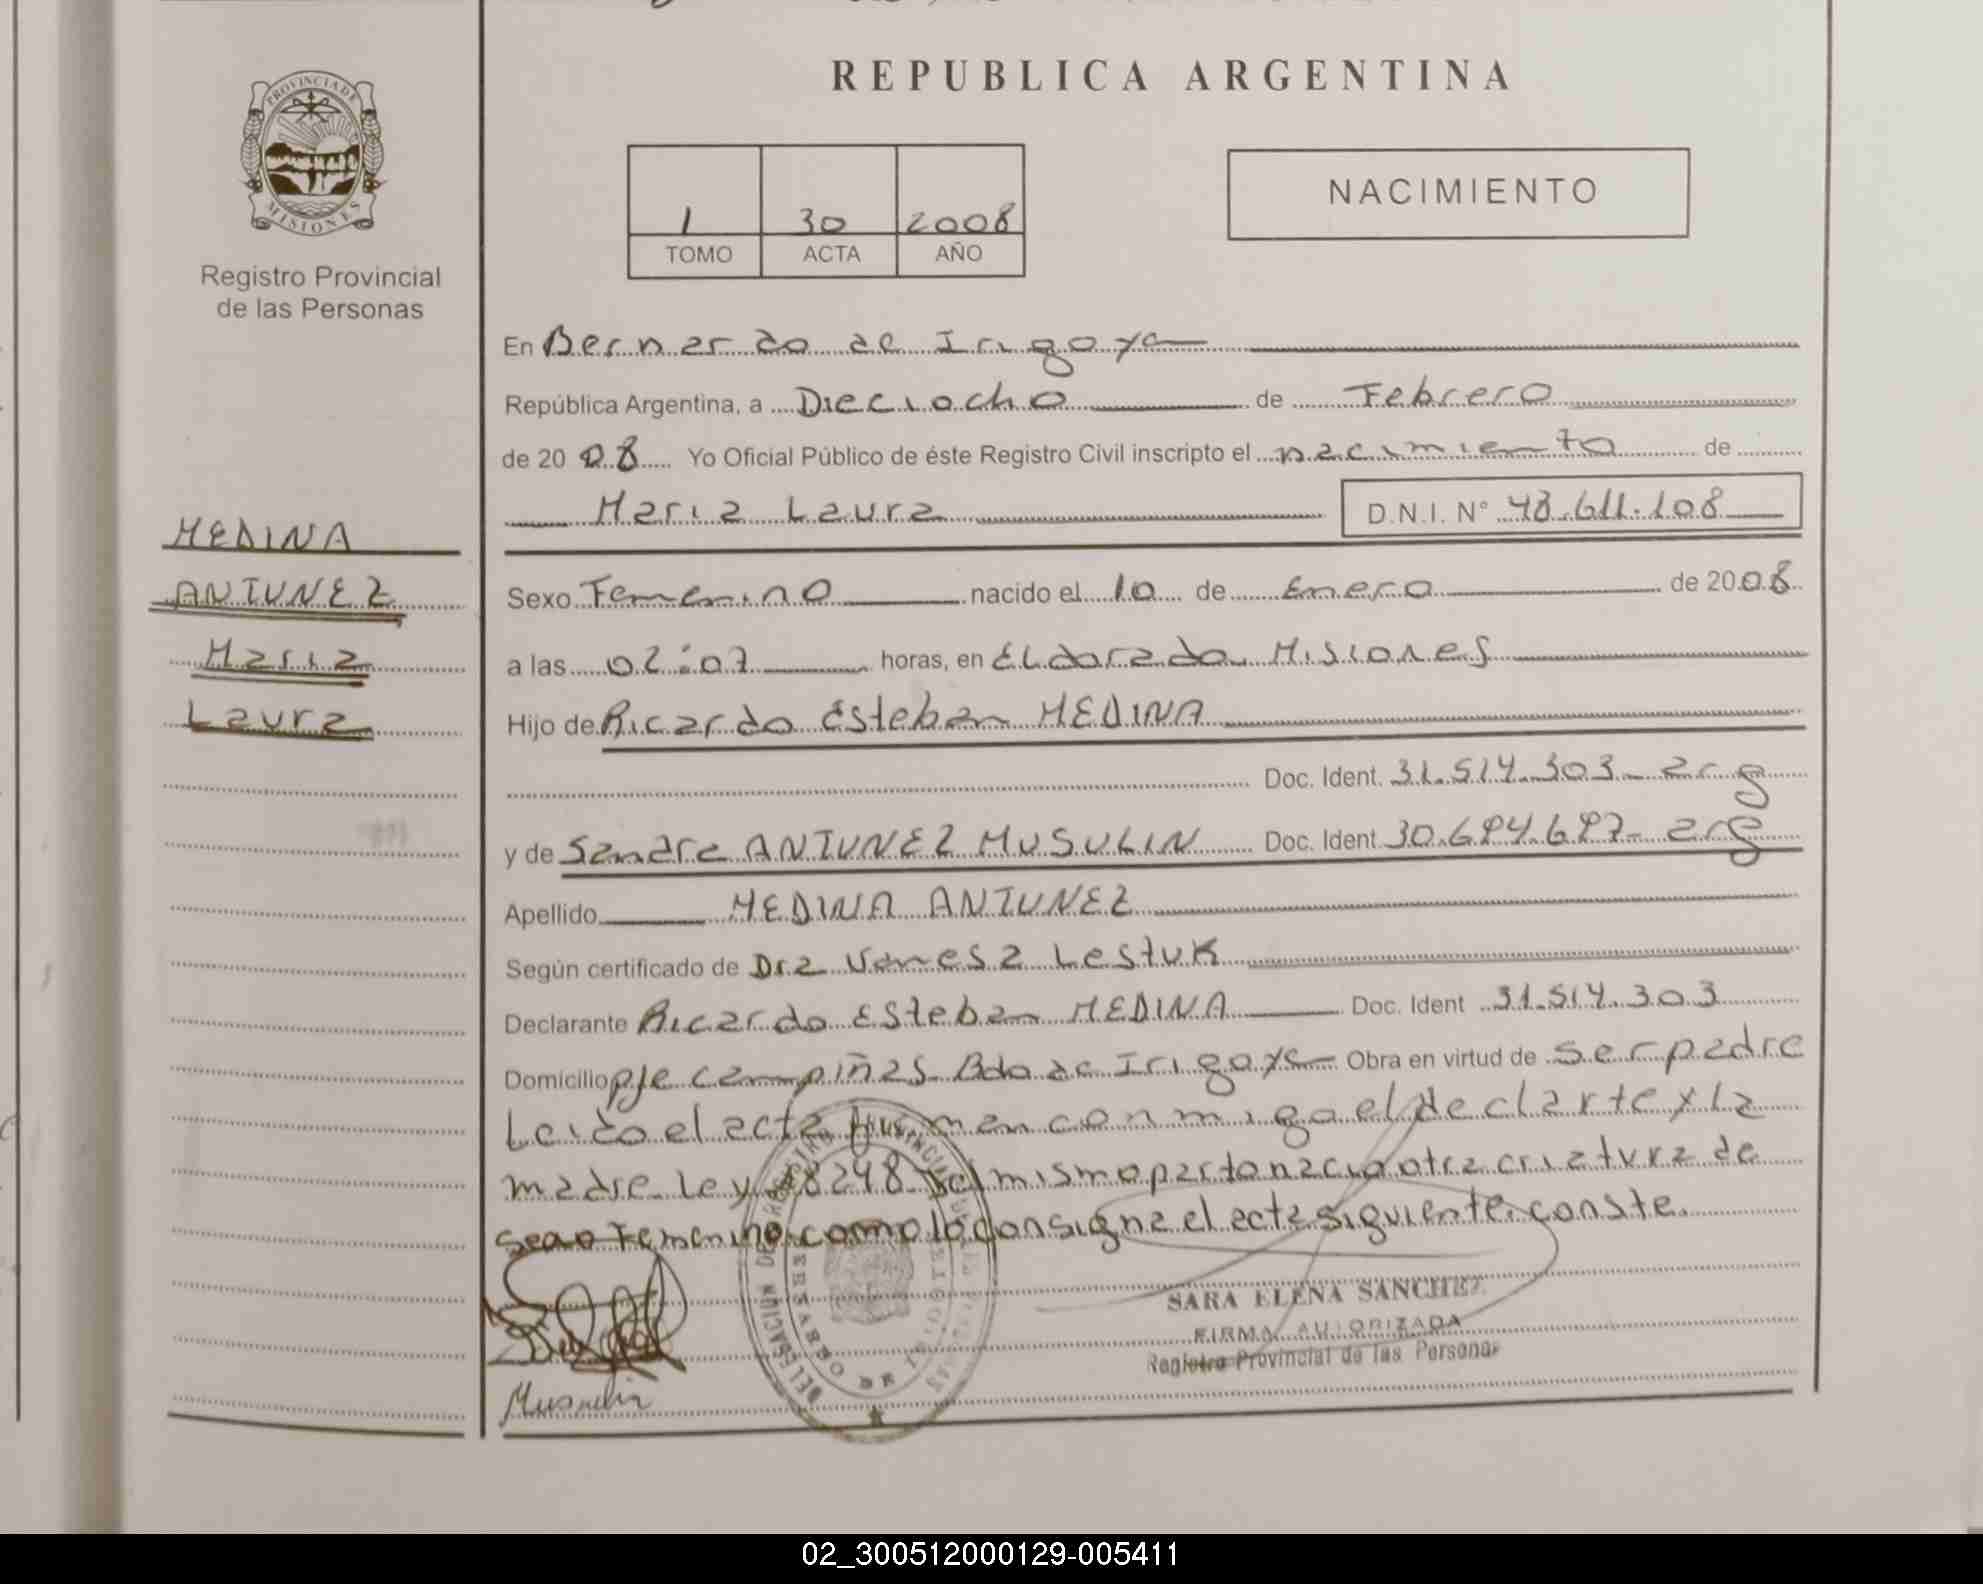 REPUBLICA ARGENTINA
PROVINCIA DE
MISIONES
Registro Provincial
de las Personas
1 30 2008
TOMO ACTA AÑO
NACIMIENTO
MEDINA
ANTUNEZ
Maria
Laura
En Bernardo de Irigoye
República Argentina, a Dieciocho de Febrero
de 2008 Yo Oficial Público de éste Registro Civil inscripto el nacimiento de
Maria Laura D.N.I. Nº 48.611.108
Sexo Femenino nacido el 10 de Enero de 2008
a las 02:07 horas, en Eldorado Misiones
Hijo de Ricardo Esteban MEDINA
Doc. Ident. 31.514.303 arg
y de Sandra ANTUNEZ MUSULIN Doc. Ident 30.694.697- arg
Apellido MEDINA ANTUNEZ
Según certificado de Dra Vanesa Lestuk
Declarante Ricardo Esteban MEDINA Doc. Ident 31.514.303
Domicilio pje campiñas Bdo de Irigoye Obra en virtud de ser padre
Leido el acta firman conmigo el declarte y la
madre Ley 18248 Del mismo parto nacio otra criatura de
sexo Femenino como lo consigna el acta siguiente. conste.
SARA ELENA SANCHEZ
FIRMA AUTORIZADA
Registro Provincial de las Personas
DELEGACION
BERNARDO DE IRIGOYEN
Musulin
02_300512000129-005411